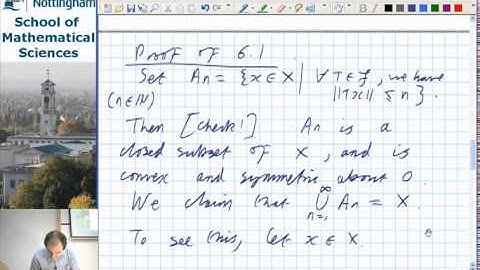 Nottingham
School of
Mathematical
Sciences
Proof of 6.1
Set An = {x∈X | ∀ T∈F, we have
(n∈ℕ) ||Tx|| ≤ n}.
Then [check!] An is a
closed subset of X, and is
convex and symmetric about 0.
We claim that ∞⋃n=1 An = X.
To see this, let x∈X.